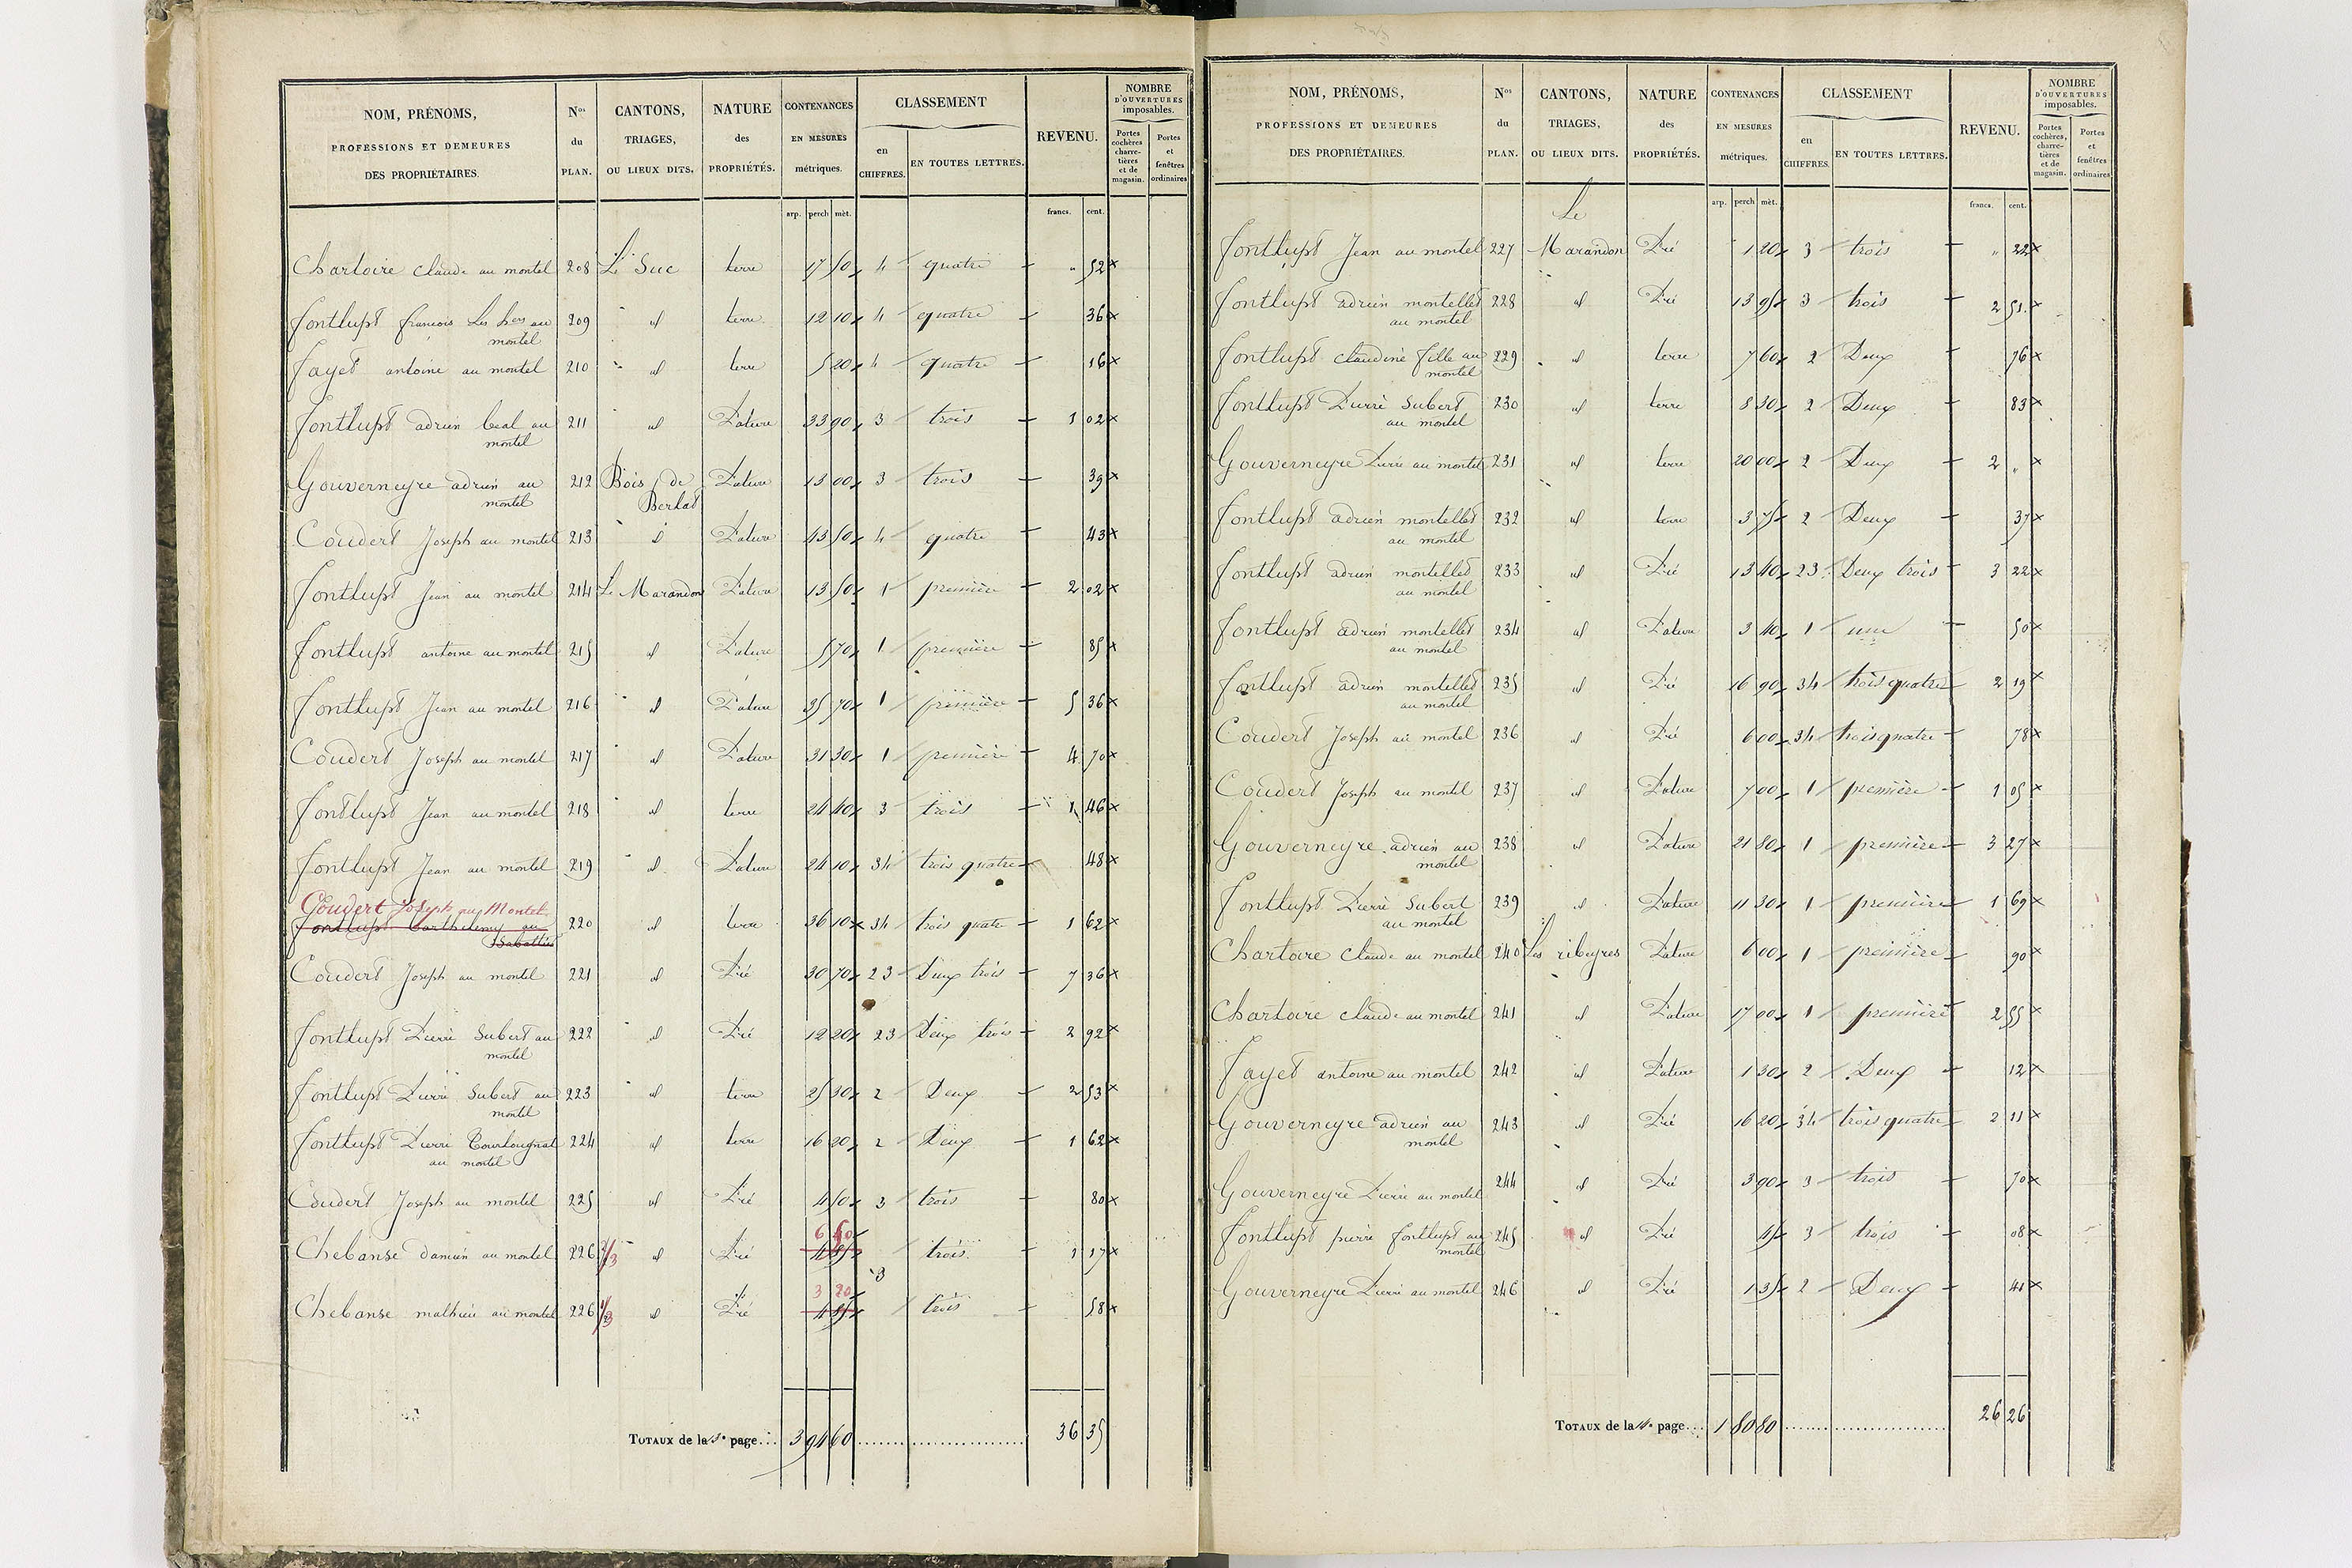 NOM, PRÉNOMS,
PROFESSIONS ET DEMEURES
DES PROPRIÉTAIRES.
Nos du PLAN.
CANTONS, TRIAGES, OU LIEUX DITS.
NATURE des PROPRIÉTÉS.
CONTENANCES EN MESURES métriques.
CLASSEMENT
en CHIFFRES.
EN TOUTES LETTRES.
REVENU.
NOMBRE D'OUVERTURES imposables.
Portes cochères, charretières et de magasin.
Portes et fenêtres ordinaires
arp. perch mèt. francs. cent.
Chartoire Claude au montel 208 Le Suc terre 17 50 4 quatre " 52
fontlupt francois Les hers au montel 209 id terre 12 10 4 quatre 36
fayet antoine au montel 210 id terre 5 20 4 quatre 16
fontlupt adrien beal au montel 211 id Pature 33 90 3 trois 1 02
Gouverneyre adrien au montel 212 Bois de Berlat Pature 13 00 3 trois 39
Coudert Joseph au montel 213 id Pature 43 50 4 quatre 43
fontlupt Jean au montel 214 Le Marandon Pature 13 50 1 première 2 02
fontlupt antoine au montel 215 id Pature 5 70 1 première 85
fontlupt Jean au montel 216 id Pature 35 70 1 première 5 36
Coudert Joseph au montel 217 id Pature 31 30 1 première 4 70
fontlupt Jean au montel 218 id terre 24 40 3 trois 1 46
fontlupt Jean au montel 219 id Pature 24 10 34 trois quatre 48
Coudert Joseph au Montel
fontlupt barthelemy au Sabattier 220 id terre 36 10 34 trois quatre 1 62
Coudert Joseph au montel 221 id Pré 30 70 23 Deux trois 7 36
fontlupt Pierre Subert au montel 222 id Pré 12 20 23 Deux trois 2 92
fontlupt Pierre Subert au montel 223 id terre 25 30 2 Deux 2 53
fontlupt Pierre Tourlougnat au montel 224 id terre 16 20 2 Deux 1 62
Coudert Joseph au montel 225 id Pré 4 50 3 trois 80
6 50
Chebanse damien au montel 226 2/3 id Pré 4 85 trois 1 17
3
3 20
Chebanse mathieu au montel 226 1/3 id Pré 4 85 trois 58
TOTAUX de la 3e page... 3 94 60 36 35
NOM, PRÉNOMS,
PROFESSIONS ET DEMEURES
DES PROPRIÉTAIRES.
Nos du PLAN.
CANTONS, TRIAGES, OU LIEUX DITS.
NATURE des PROPRIÉTÉS.
CONTENANCES EN MESURES métriques.
CLASSEMENT
en CHIFFRES.
EN TOUTES LETTRES.
REVENU.
NOMBRE D'OUVERTURES imposables.
Portes cochères, charretières et de magasin.
Portes et fenêtres ordinaires
arp. perch mèt. francs. cent.
Le
fontlupt Jean au montel 227 Marandon Pré 1 20 3 trois " 22
fontlupt adrien montellet au montel 228 id Pré 13 95 3 trois 2 51
fontlupt claudine fille au montel 229 id terre 7 60 2 Deux 76
fontlupt Pierre Subert au montel 230 id terre 8 30 2 Deux 83
Gouverneyre Pierre au montel 231 id terre 20 00 2 Deux 2 "
fontlupt adrien montellet au montel 232 id terre 3 75 2 Deux 37
fontlupt adrien montellet au montel 233 id Pré 13 40 23 Deux trois 3 22
fontlupt adrien montellet au montel 234 id Pature 3 40 1 une 50
fontlupt adrien montellet au montel 235 id Pré 16 90 34 trois quatre 2 19
Coudert Joseph au montel 236 id Pré 6 00 34 trois quatre 78
Coudert Joseph au montel 237 id Pature 7 00 1 première 1 05
Gouverneyre adrien au montel 238 id Pature 21 80 1 première 3 27
fontlupt Pierre Subert au montel 239 id Pature 11 30 1 première 1 69
Chartoire Claude au montel 240 Les ribeyres Pature 6 00 1 première 90
Chartoire claude au montel 241 id Pature 17 00 1 première 2 55
Fayet antoine au montel 242 id Pature 1 30 2 Deux 12
Gouverneyre adrien au montel 243 id Pré 16 20 34 trois quatre 2 11
Gouverneyre Pierre au montel 244 id Pré 3 90 3 trois 70
fontlupt pierre fontlupt au montel 245 id Pré 45 3 trois 08
Gouverneyre Pierre au montel 246 id Pré 1 35 2 Deux 41
TOTAUX de la 4e page... 1 80 80 26 26